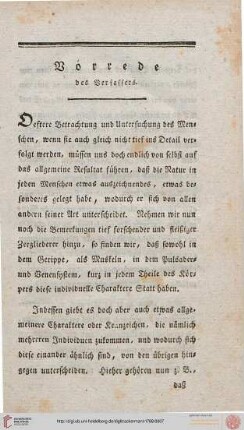 Vorrede
des Verfassers.
Oeftere Betrachtung und Untersuchung des Men-
schen, wenn sie auch gleich nicht tief ins Detail ver-
folgt werden, müssen uns doch endlich von selbst auf
das allgemeine Resultat führen, daß die Natur in
jeden Menschen etwas auszeichnendes, etwas be-
sonderes gelegt habe, wodurch er sich von allen
andern seiner Art unterscheidet. Nehmen wir nun
noch die Bemerkungen tief forschender und fleißiger
Zergliederer hinzu, so finden wir, daß sowohl in
dem Gerippe, als Muskeln, in dem Pulsader-
und Venensystem, kurz in jedem Theile des Kör-
pers diese individuelle Charaktere Statt haben.
Indessen giebt es doch aber auch etwas allge-
meinere Charaktere oder Kennzeichen, die nämlich
mehreren Individuen zukommen, und wodurch sich
diese einander ähnlich sind, von den übrigen hin-
gegen unterscheiden. Hieher gehören nun z. B.
daß